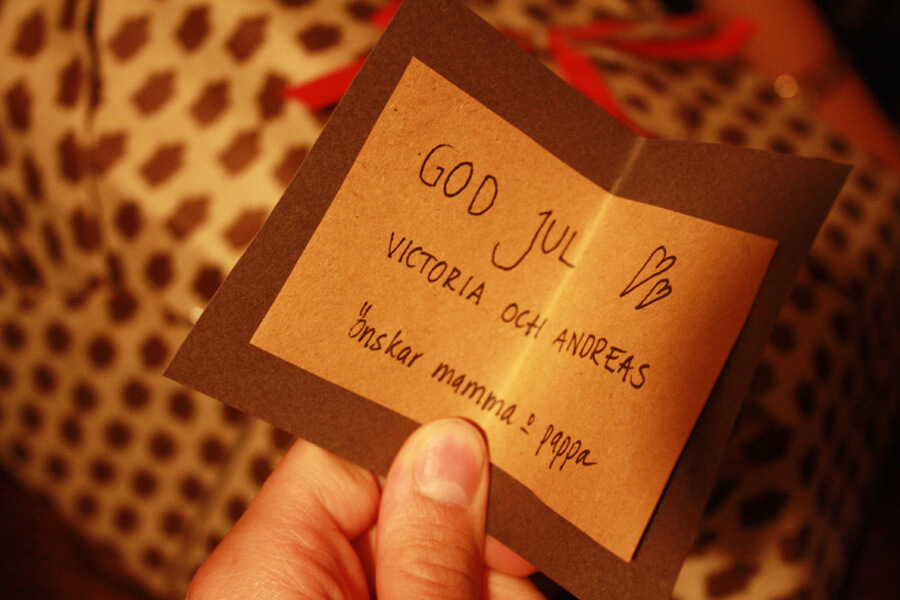 GOD JUL
VICTORIA OCH ANDREAS
önskar mamma o pappa